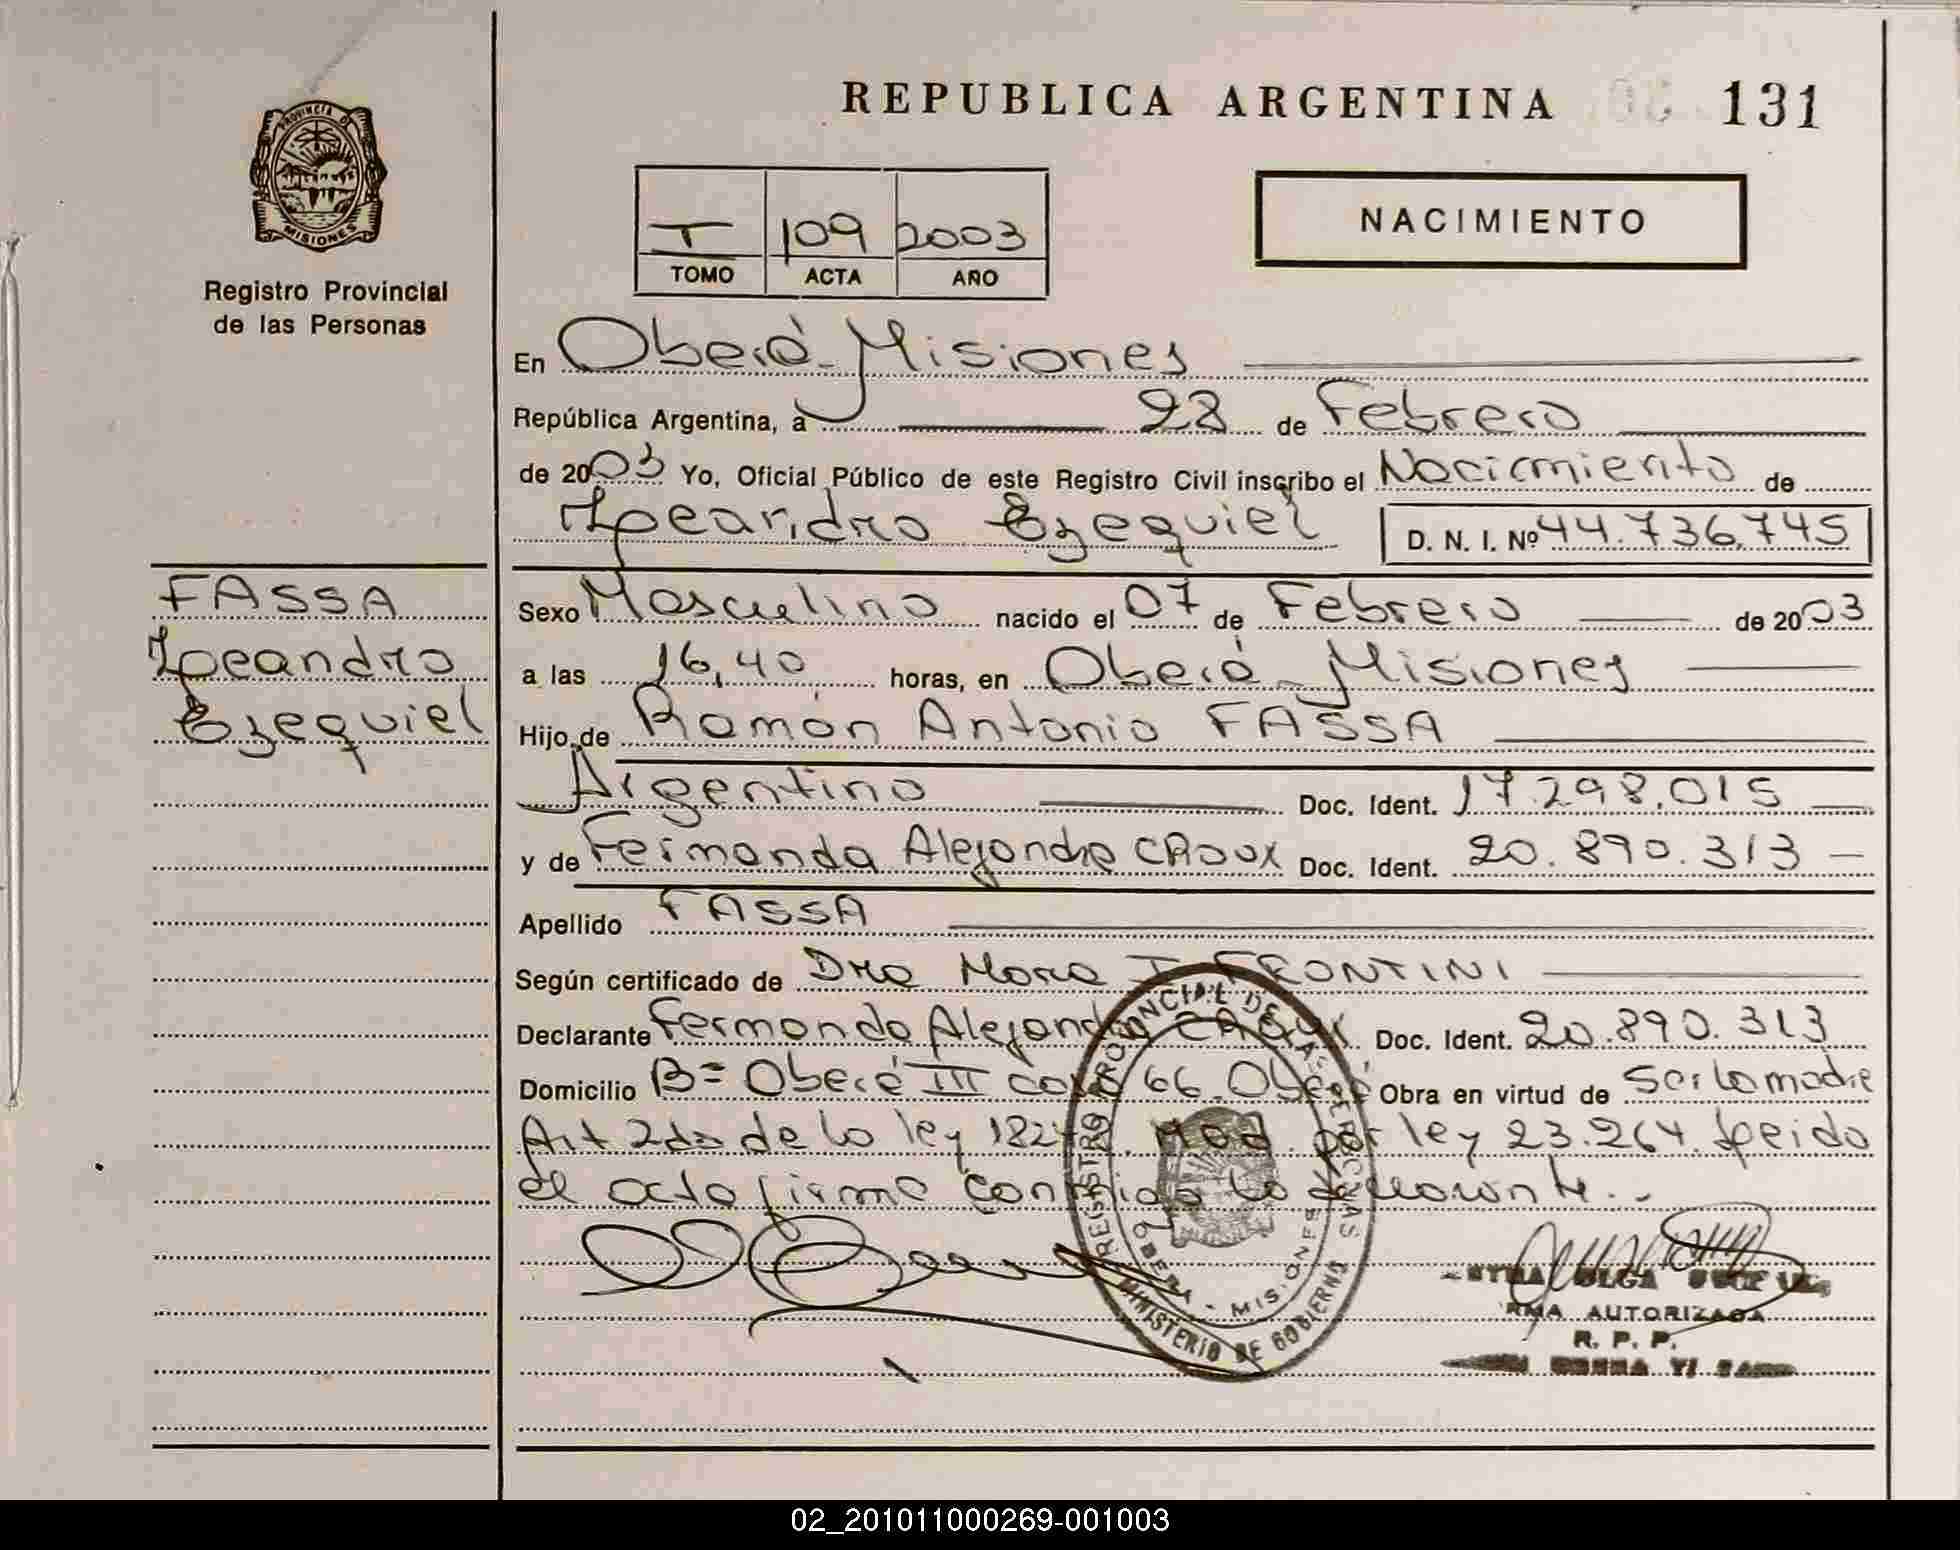 REPUBLICA ARGENTINA 131
PROVINCIA D
MISIONES
Registro Provincial
de las Personas
I 109 2003
TOMO ACTA AÑO
NACIMIENTO
En Oberá - Misiones
República Argentina, a 28 de Febrero
de 2003 Yo, Oficial Público de este Registro Civil inscribo el Nacimiento de
Leandro Ezequiel D. N. I. Nº 44.736.745
FASSA
Leandro
Ezequiel
Sexo Masculino nacido el 07 de Febrero de 2003
a las 16,40 horas, en Oberá - Misiones
Hijo de Ramón Antonio FASSA
Argentino Doc. Ident. 17.298.015
y de Fernanda Alejandra CROUX Doc. Ident. 20.890.313 —
Apellido FASSA
Según certificado de Dra Mora I FRONTINI
Declarante Fernanda Alejandra Doc. Ident. 20.890.313
Domicilio B= Oberá III casa 66. Oberá Obra en virtud de Ser la madre
Art 2do de la ley por ley 23.264. Leida
el acta firma conmigo la declarante..
REGISTRO PROVINCIAL DE LAS PERSONAS
OBERA - MISIONES
MINISTERIO DE GOBIERNO
OLGA
AUTORIZADA
R. P. P.
02_201011000269-001003